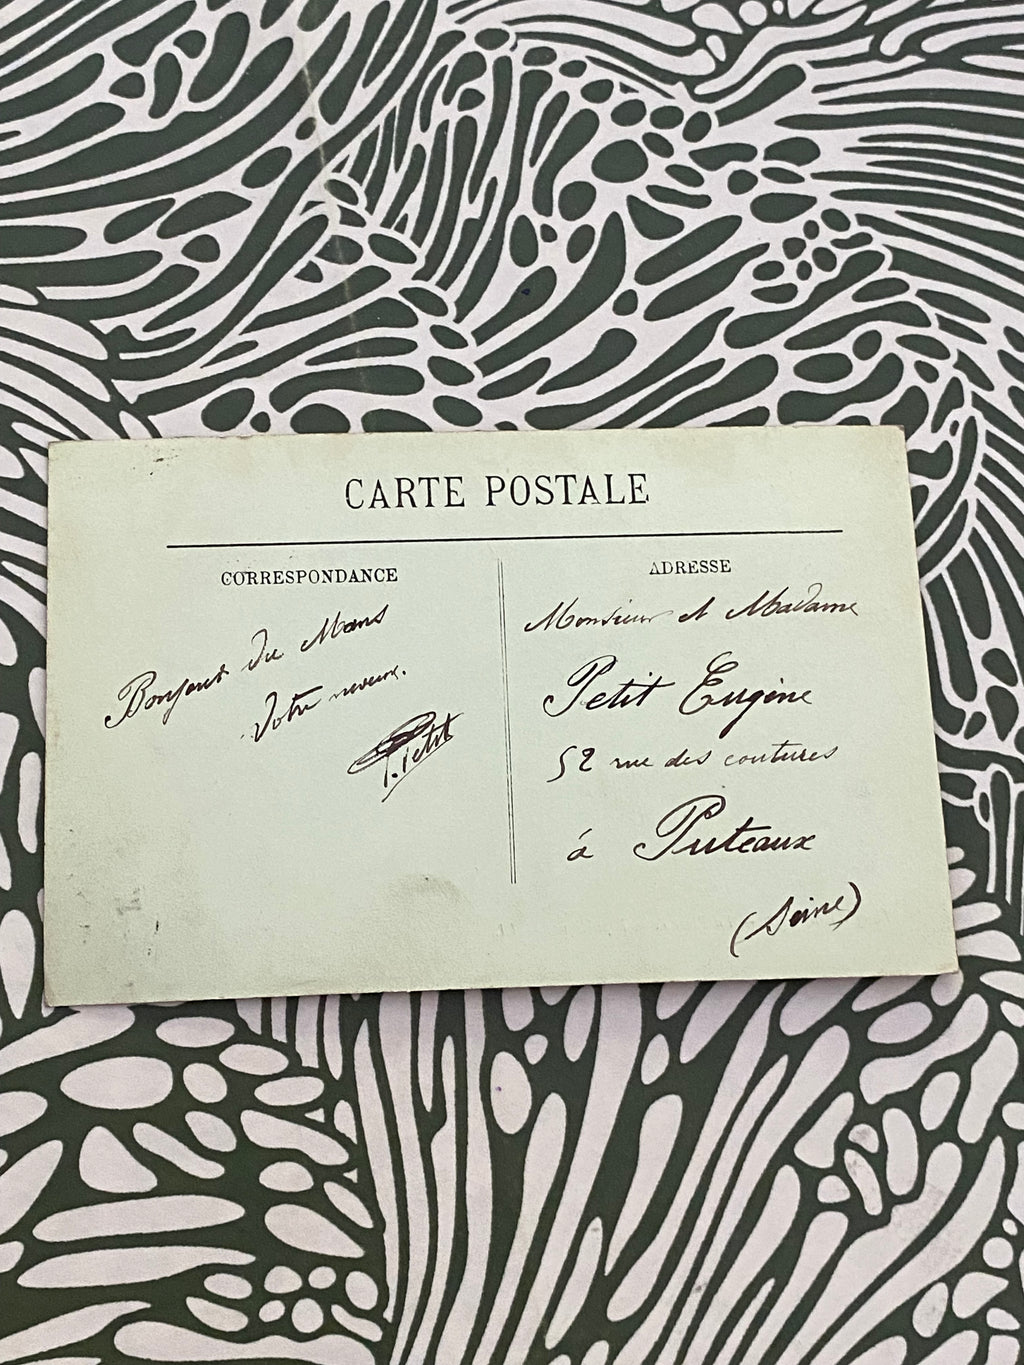 CARTE POSTALE
CORRESPONDANCE
Bonjour du Mans
Votre neveux.
P. Petit
ADRESSE
Monsieur et Madame
Petit Eugène
52 rue des coutures
à Puteaux
(Seine)